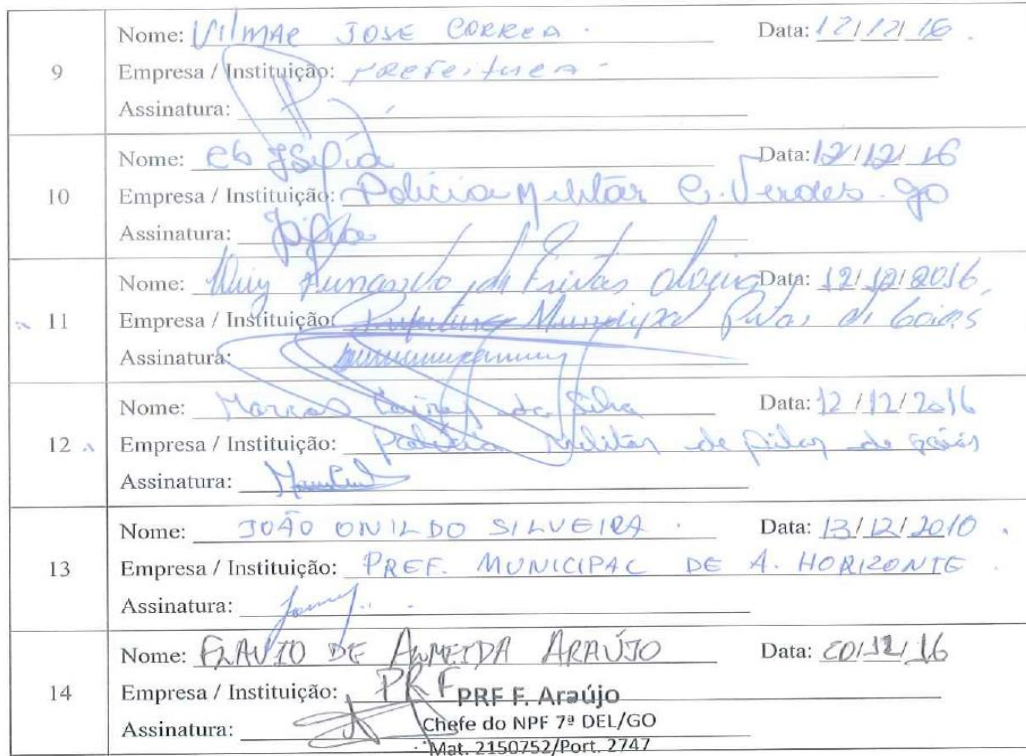 9
Nome: Vilmar JOSE CORREA . Data: 12/12/16 .
Empresa / Instituição: PREFEITURA
Assinatura:
10
Nome: Cb Data: 12/12/16
Empresa / Instituição: Policia Militar C. Verdes - go
Assinatura:
11
Nome: de Freitas Data: 12/12/2016
Empresa / Instituição: Prefeitura Municipal Pilar de Goias
Assinatura:
12
Nome: Marcos da Silva Data: 12/12/2016
Empresa / Instituição: Policia Militar de pilar de goiás
Assinatura:
13
Nome: JOÃO ONILDO SILVEIRA . Data: 13/12/2010 .
Empresa / Instituição: PREF. MUNICIPAL DE A. HORIZONTE .
Assinatura:
14
Nome: FLAVIO DE ALMEIDA ARAÚJO Data: /12/16
Empresa / Instituição: PRF PRF F. Araújo
Chefe do NPF 7ª DEL/GO
Assinatura:
Mat. 2150752/Port. 2747